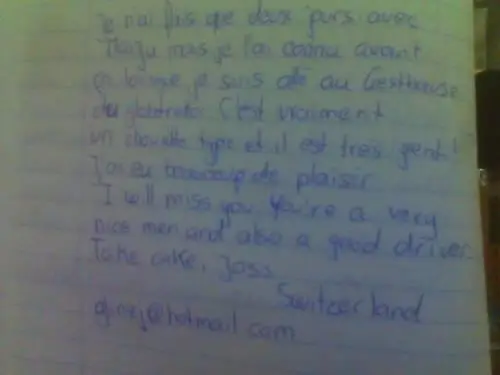 Je n'ai fais que deux jours avec
mais je l'ai connu avant
lorsque je suis allé au Gesthouse
du C'est vraiment
un chouette type et il est très gentil
J'ai eu beaucoup de plaisir
I will miss you. You're a very
nice men and also a good driver.
Take care,
Switzerland
@hotmail.com